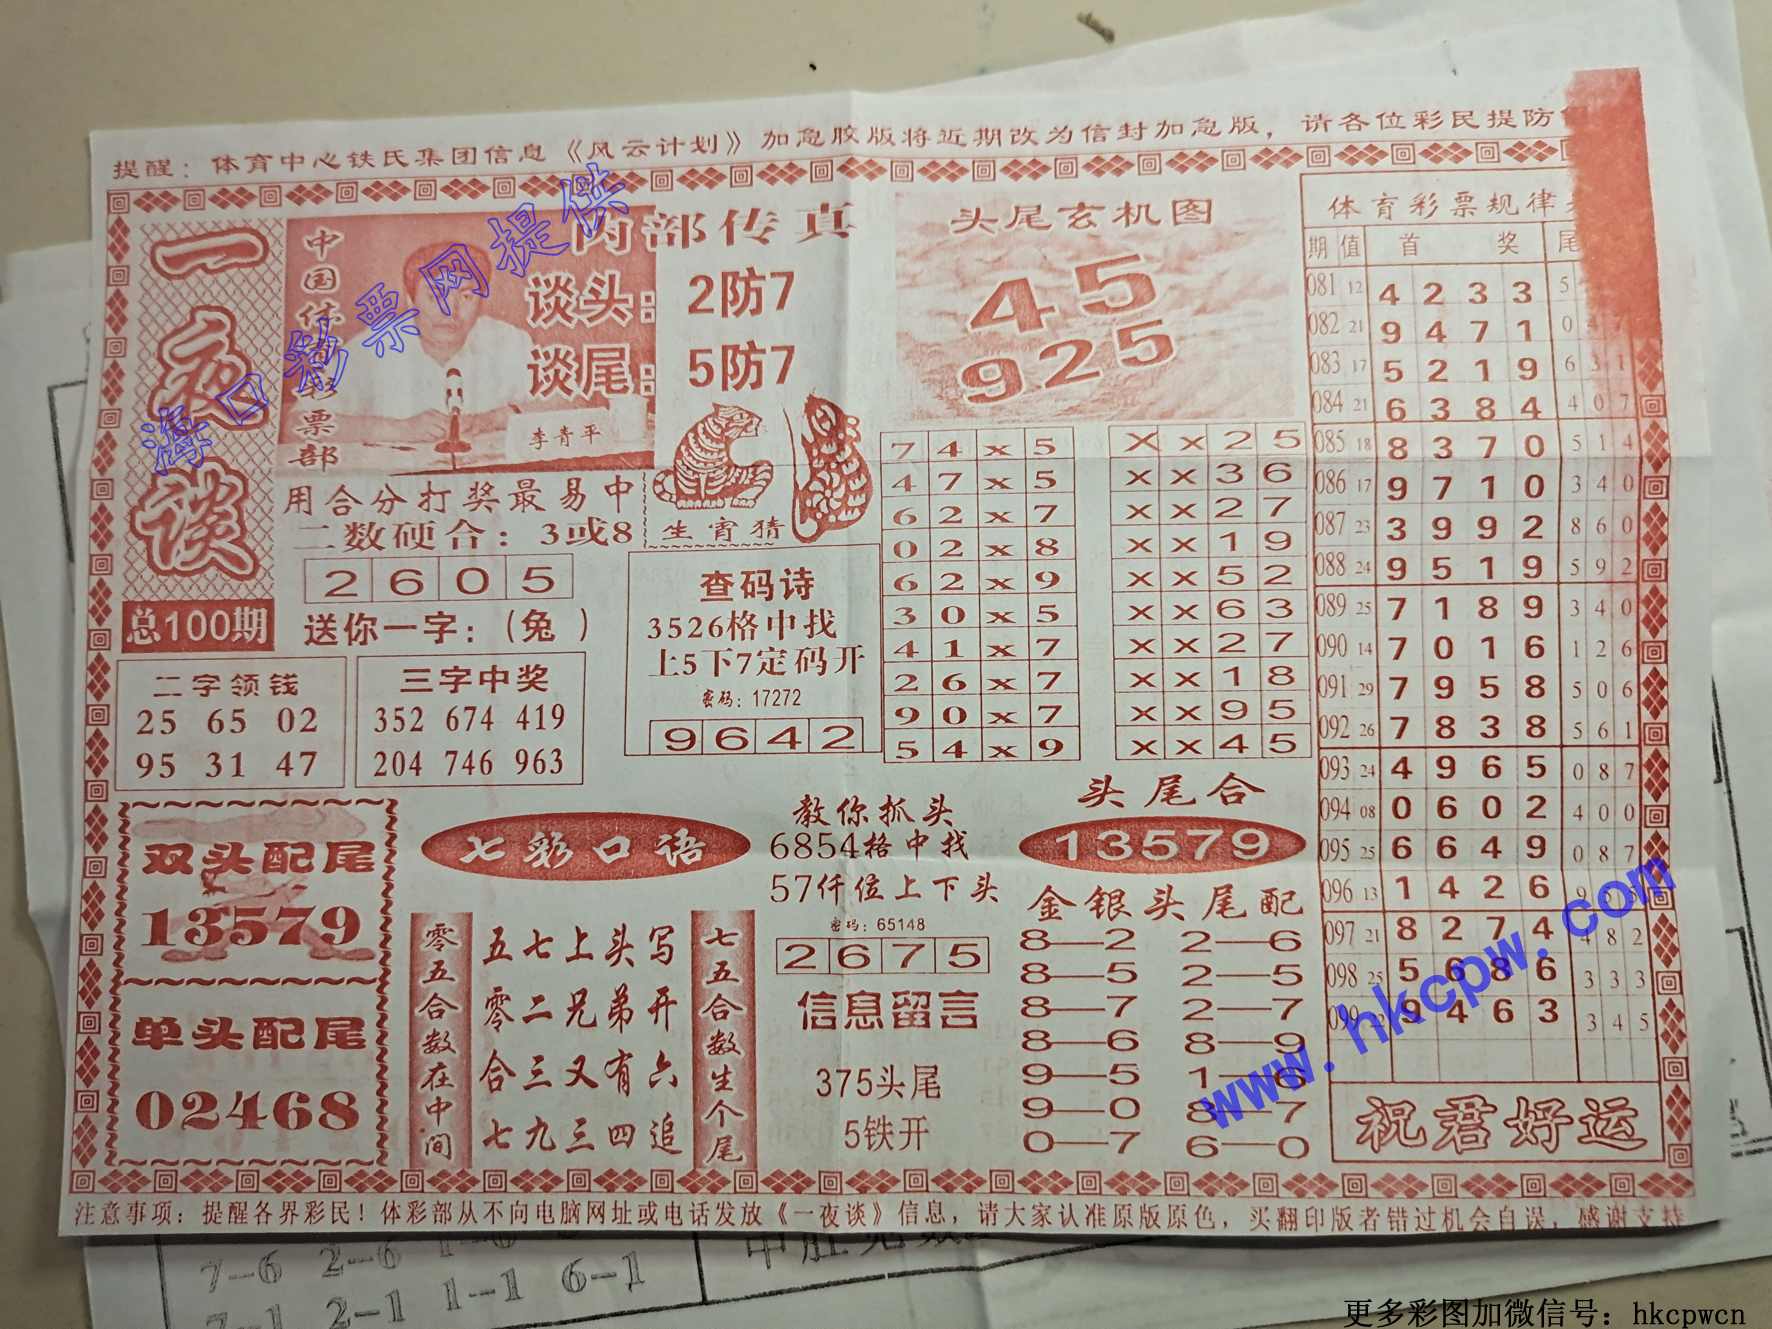 提醒：体育中心铁氏集团信息《风云计划》加急胶版将近期改为信封加急版，请各位彩民提防
一夜谈
总100期
中国体育彩票部
内部传真
谈头：2防7
谈尾：5防7
李青平
用合分打奖最易中
二数硬合：3或8
2 6 0 5
送你一字：（兔 ）
生宵猜
头尾玄机图
45
925
二字领钱
25 65 02
95 31 47
三字中奖
352 674 419
204 746 963
查码诗
3526格中找
上5下7定码开
密码：17272
9 6 4 2
7 4 x 5
4 7 x 5
6 2 x 7
0 2 x 8
6 2 x 9
3 0 x 5
4 1 x 7
2 6 x 7
9 0 x 7
5 4 x 9
X x 2 5
X x 3 6
X x 2 7
X x 1 9
X x 5 2
X x 6 3
X x 2 7
X x 1 8
X x 9 5
X x 4 5
双头配尾
13579
单头配尾
02468
七彩口语
零五合数在中间
五七上头写
零二兄弟开
合三又有六
七九三四追
七五合数生个尾
教你抓头
6854格中找
57仟位上下头
密码：65148
2 6 7 5
信息留言
375头尾
5铁开
头尾合
13579
金银头尾配
8—2 2—6
8—5 2—5
8—7 2—7
8—6 8—9
9—5 1—6
9—0 8—7
0—7 6—0
体育彩票规律
期 值 首 奖 尾
081 12 4 2 3 3 5
082 21 9 4 7 1 0 4 7
083 17 5 2 1 9 6 3 1
084 21 6 3 8 4 4 0 7
085 18 8 3 7 0 5 1 4
086 17 9 7 1 0 3 4 0
087 23 3 9 9 2 8 6 0
088 24 9 5 1 9 5 9 2
089 25 7 1 8 9 3 4 0
090 14 7 0 1 6 1 2 6
091 29 7 9 5 8 5 0 6
092 26 7 8 3 8 5 6 1
093 24 4 9 6 5 0 8 7
094 08 0 6 0 2 4 0 0
095 25 6 6 4 9 0 8 7
096 13 1 4 2 6 9
097 21 8 2 7 4 4 8 2
098 25 5 6 8 6 3 3 3
099 22 9 4 6 3 3 4 5
祝君好运
注意事项：提醒各界彩民！体彩部从不向电脑网址或电话发放《一夜谈》信息，请大家认准原版原色，买翻印版者错过机会自误，感谢支持
海口彩票网提供
www.hkcpw.com
7—6 2—6
2—1 1—1 6—1
更多彩图加微信号：hkcpwcn